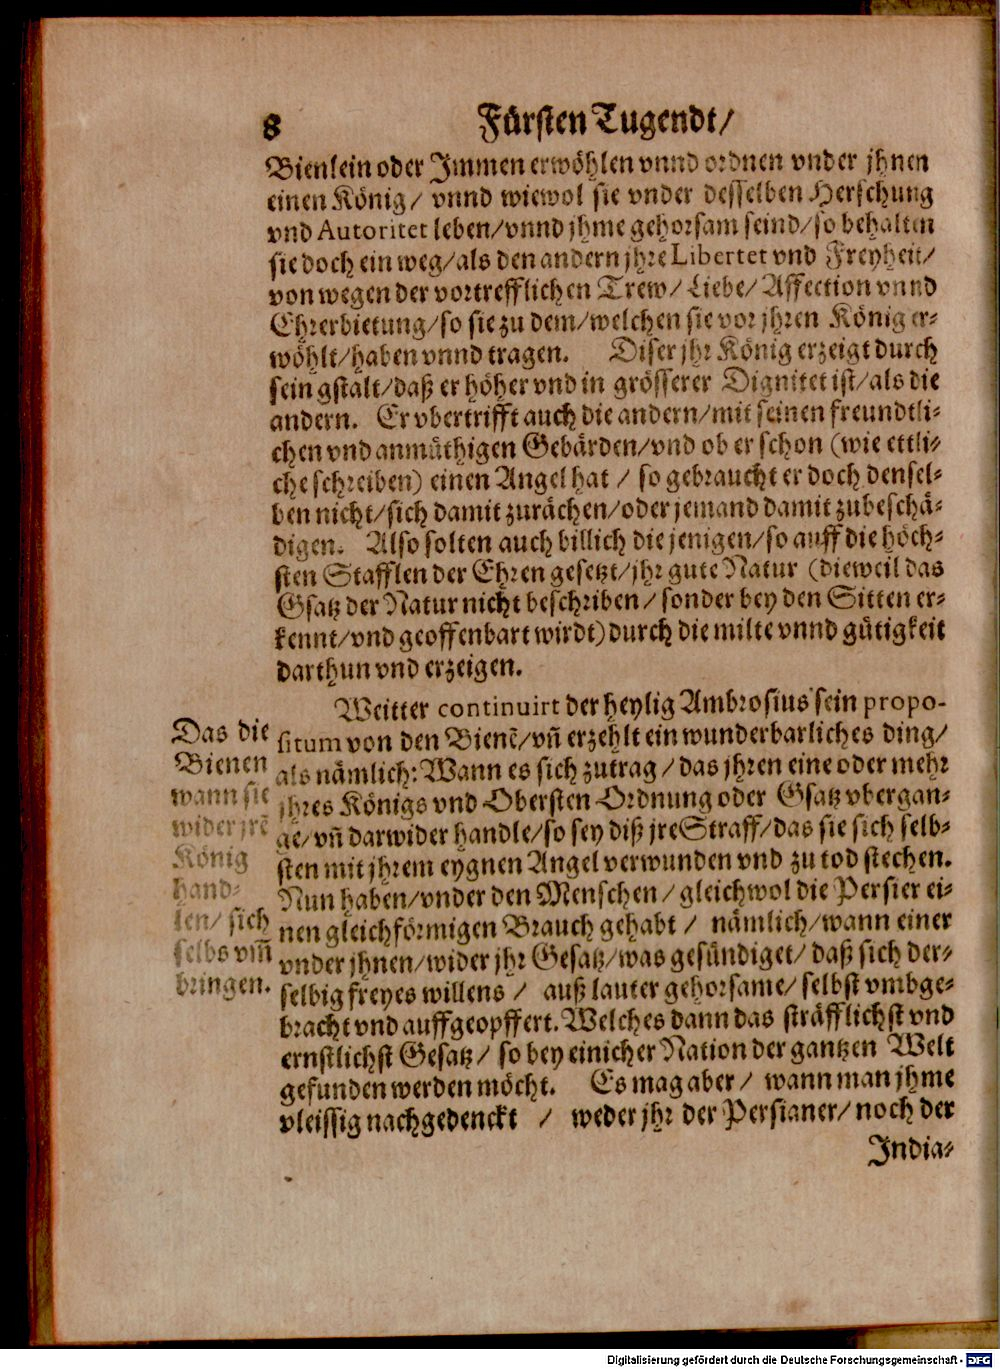 8 Fürsten Tugendt/
Bienlein oder Immen erwöhlen vnnd ordnen vnder jhnen
einen König/ vnnd wiewol sie vnder desselben Herschung
vnd Autoritet leben/vnnd jhme gehorsam seind/so behalten
sie doch ein weg/als den andern jhre Libertet vnd Freyheit/
von wegen der vortrefflichen Trew/ Liebe/ Affection vnnd
Ehrerbietung/so sie zu dem/welchen sie vor jhren König er-
wöhlt/haben vnnd tragen. Diser jhr König erzeigt durch
sein gstalt/daß er höher vnd in grösserer Dignitet ist/als die
andern. Er vbertrifft auch die andern/mit seinen freundtli-
chen vnd anmüthigen Gebärden/vnd ob er schon (wie ettli-
che schreiben) einen Angel hat / so gebraucht er doch densel-
ben nicht/sich damit zurächen/oder jemand damit zubeschä-
digen. Also solten auch billich die jenigen/so auff die höch-
sten Stafflen der Ehren gesetzt/jhr gute Natur (dieweil das
Gsatz der Natur nicht beschriben/ sonder bey den Sitten er-
kennt/vnd geoffenbart wirdt) durch die milte vnnd gütigkeit
darthun vnd erzeigen.
Weitter continuirt der heylig Ambrosius sein propo-
situm von den Bienẽ/vñ erzehlt ein wunderbarliches ding/
als nämlich: Wann es sich zutrag/das jhren eine oder mehr
jhres Königs vnd Obersten Ordnung oder Gsatz vbergan-
ge/vñ darwider handle/so sey diß jre Straff/das sie sich selb-
sten mit jhrem eygnen Angel verwunden vnd zu tod stechen.
Nun haben/vnder den Menschen/ gleichwol die Persier ei-
nen gleichförmigen Brauch gehabt / nämlich/wann einer
vnder jhnen/wider jhr Gesatz/was gesündiget/ daß sich der-
selbig freyes willens / auß lauter gehorsame/ selbst vmbge-
bracht vnd auffgeopffert. Welches dann das sträfflichst vnd
ernstlichst Gesatz/ so bey einicher Nation der gantzen Welt
gefunden werden möcht. Es mag aber/ wann man jhme
vleissig nachgedenckt / weder jhr der Persianer/ noch der
India-
Das die
Bienen
wann sie
wider jrẽ
König
hand-
len/ sich
selbs vm̃
bringen.
Digitalisierung gefördert durch die Deutsche Forschungsgemeinschaft - DFG